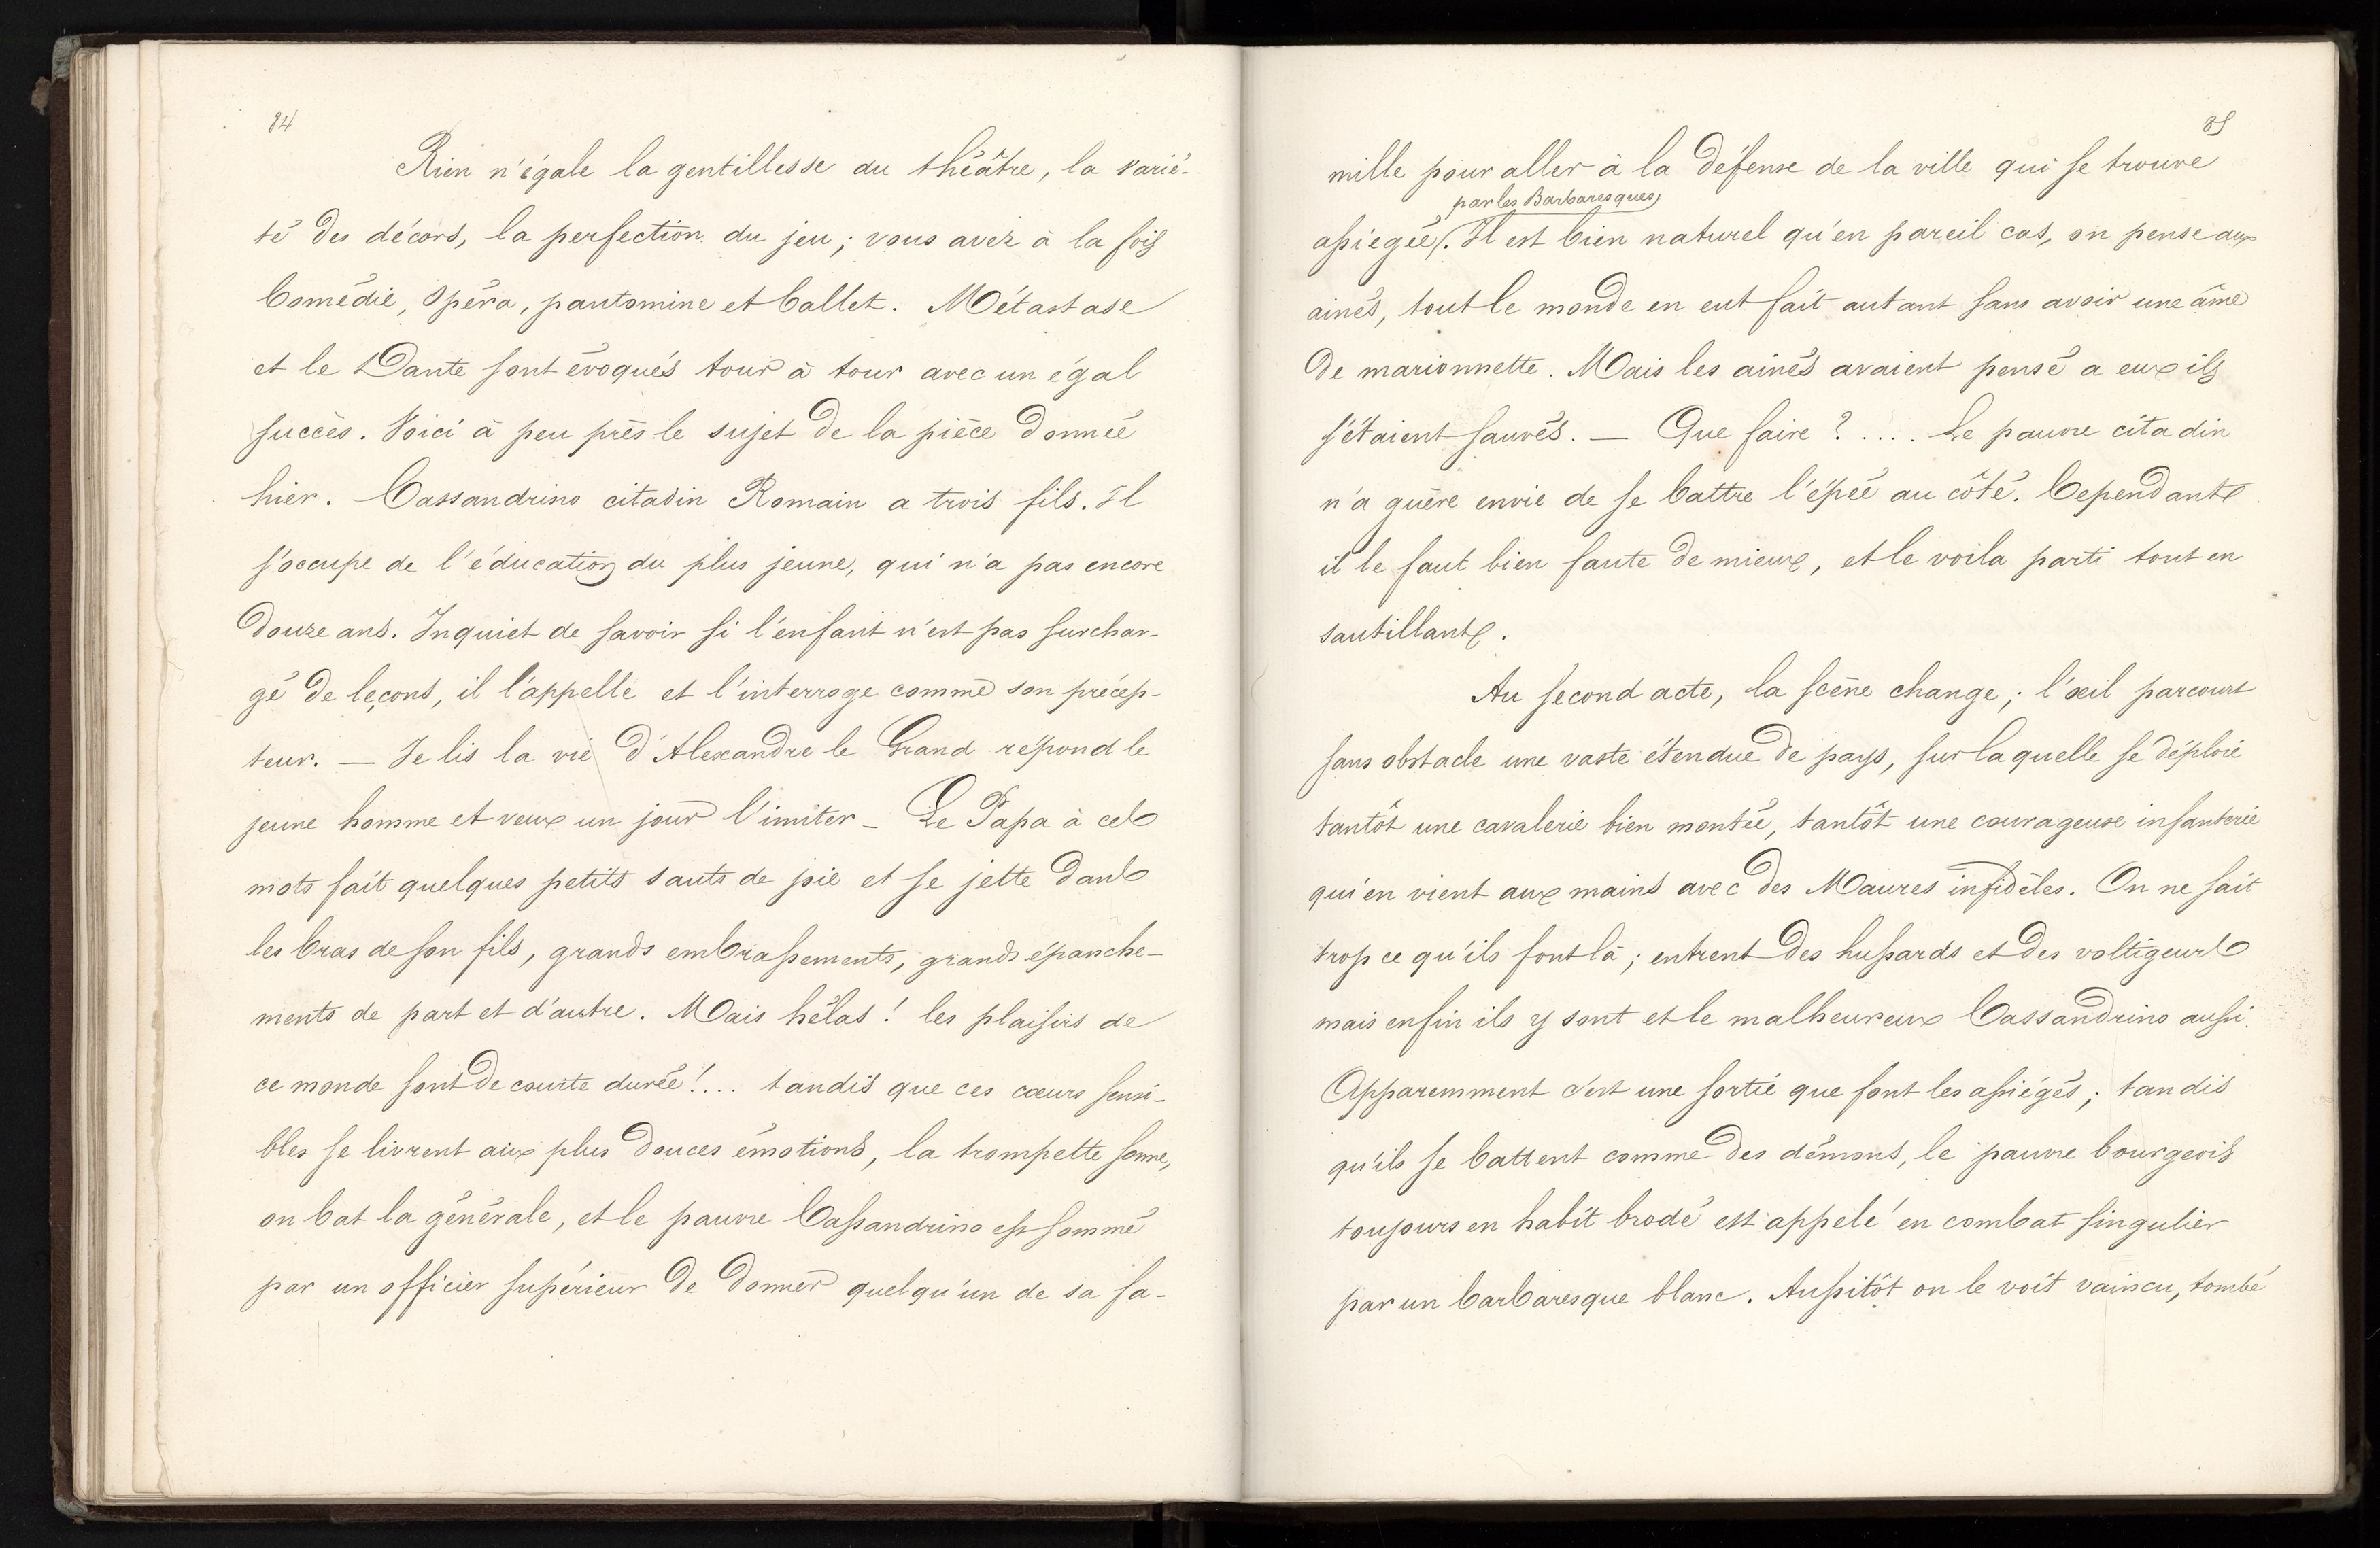 84
Rien n'égale la gentillesse du théâtre, la varié-
té des décors, la perfection du jeu ; vous avez à la fois
Comédie, Opéra, pantomine et ballet. Métastase
et le Dante sont évoqués tour à tour avec un égal
succès. Voici à peu près le sujet de la pièce donnée
hier. Cassandrino citadin Romain a trois fils. Il
s'occupe de l'éducation du plus jeune, qui n'a pas encore
douze ans. Inquiet de savoir si l'enfant n'est pas surchar-
gé de leçons, il l'appelle et l'interroge comme son précep-
teur. — Je lis la vie d'Alexandre le Grand répond le
jeune homme et veux un jour l'imiter — Le Papa à ces
mots fait quelques petits sauts de joie et se jette dans
les bras de son fils, grands embrassements, grands épanche-
ments de part et d'autre. Mais hélas ! les plaisirs de
ce monde sont de courte durée !... tandis que ces cœurs sensi-
bles se livrent aux plus douces émotions, la trompette sonne,
on bat la générale, et le pauvre Cassandrino est sommé
par un officier supérieur de donner quelqu'un de sa fa-
85
mille pour aller à la défense de la ville qui se trouve
par les Barbaresques
assiégée/. Il est bien naturel qu'en pareil cas, on pense aux
ainés, tout le monde en eut fait autant sans avoir une âme
de marionnette. Mais les ainés avaient pensé a eux ils
s'étaient sauvés. — Que faire ? .... Le pauvre citadin
n'a guère envie de se battre l'épée au côté. Cependant
il le faut bien faute de mieux, et le voila parti tout en
sautillant.
Au second acte, la scène change ; l'œil parcourt
sans obstacle une vaste étendue de pays, sur laquelle se déploie
tantôt une cavalerie bien montée, tantôt une courageuse infanterie
qui en vient aux mains avec des Maures infidèles. On ne sait
trop ce qu'ils font là ; entrent des hussards et des voltigeurs
mais enfin ils y sont et le malheureux Cassandrino aussi.
Apparemment c'est une sortie que font les assiégés ; tandis
qu'ils se battent comme des démons, le pauvre bourgeois
toujours en habit brodé est appelé en combat singulier
par un barbaresque blanc. Aussitôt on le voit vaincu, tombé